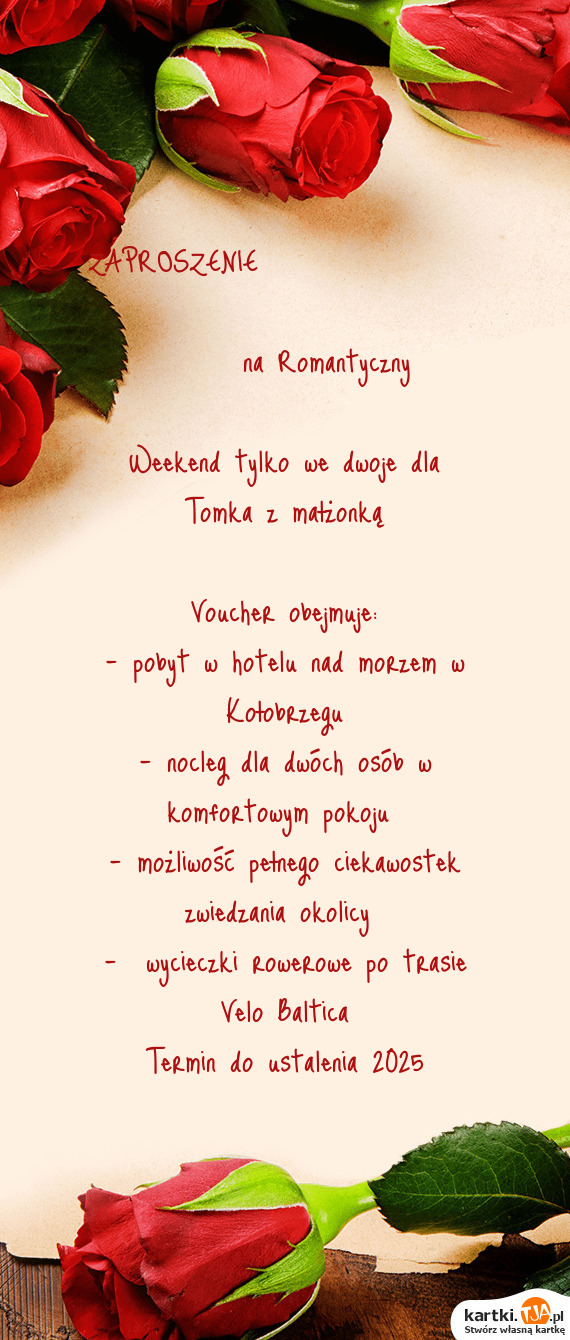 ZAPROSZENIE
na Romantyczny
Weekend tylko we dwoje dla
Tomka z małżonką
Voucher obejmuje:
- pobyt w hotelu nad morzem w
Kołobrzegu
- nocleg dla dwóch osób w
komfortowym pokoju
- możliwość pełnego ciekawostek
zwiedzania okolicy
- wycieczki rowerowe po trasie
Velo Baltica
Termin do ustalenia 2025
kartki.TJA.pl
Stwórz własną kartkę